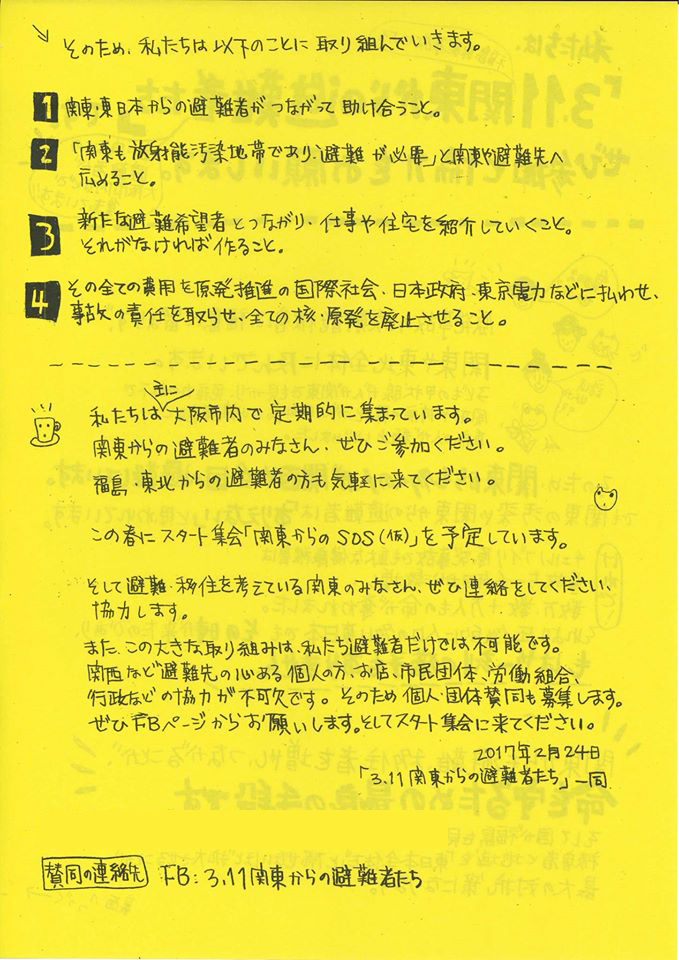 そのため、私たちは以下のことに取り組んでいきます。
1 関東・東日本からの避難者がつながって助け合うこと。
2 「関東も放射能汚染地帯であり、避難が必要」と関東や避難先へ
広めること。
3 新たな避難希望者とつながり、仕事や住宅を紹介していくこと。
それがなければ作ること。
4 その全ての費用を原発推進の国際社会、日本政府、東京電力などに払わせ、
事故の責任を取らせ、全ての核・原発を廃止させること。
私たちは主に大阪市内で定期的に集まっています。
関東からの避難者のみなさん、ぜひご参加ください。
福島・東北からの避難者の方も気軽に来てください。
この春にスタート集会「関東からのSOS(仮)」を予定しています。
そして避難・移住を考えている関東のみなさん、ぜひ連絡をしてください、
協力します。
また、この大きな取り組みは、私たち避難者だけでは不可能です。
関西など避難先の心ある個人の方、お店、市民団体、労働組合、
行政などの協力が不可欠です。そのため個人・団体賛同も募集します。
ぜひFBページからお願いします。そしてスタート集会に来てください。
2017年2月24日
「3.11関東からの避難者たち」一同
賛同の連絡先 FB:3.11関東からの避難者たち